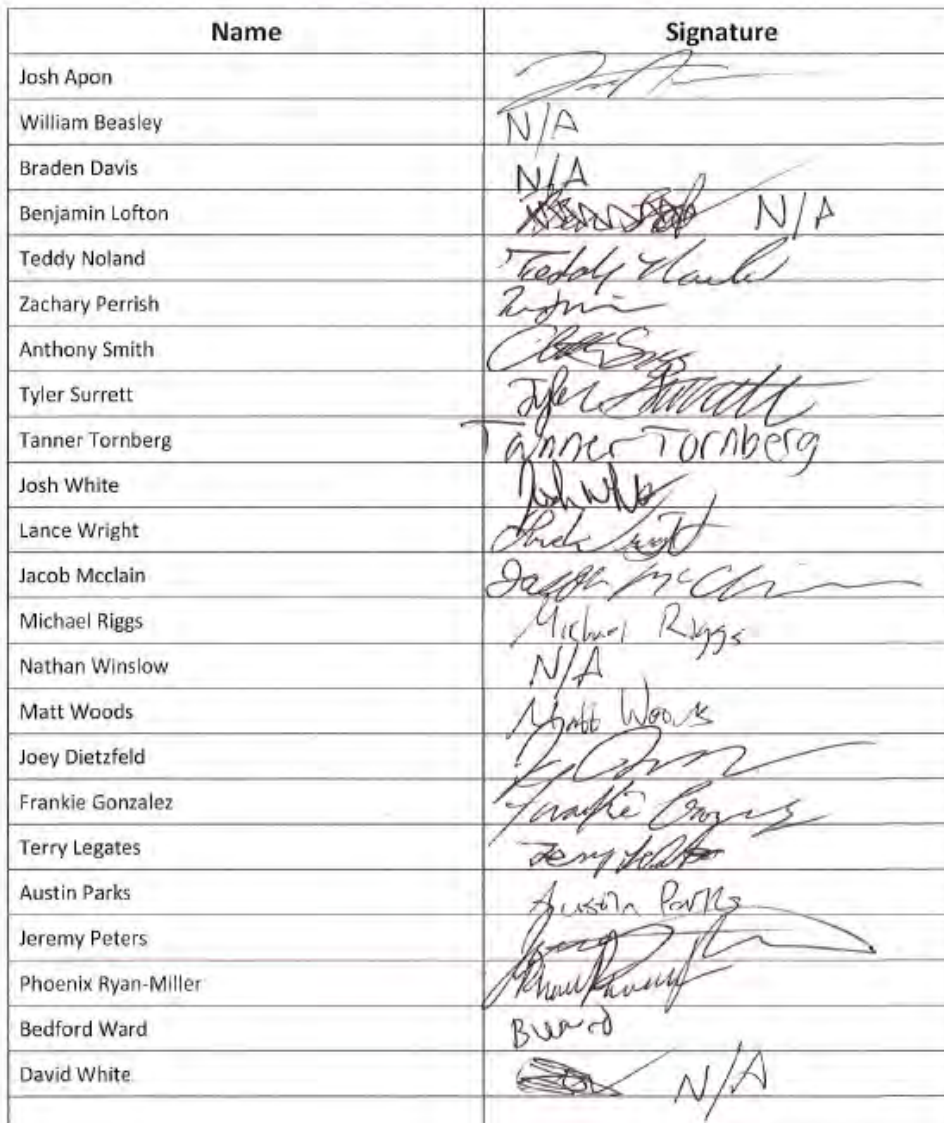 Name Signature
Josh Apon
William Beasley N/A
Braden Davis N/A
Benjamin Lofton N/A
Teddy Noland Teddy
Zachary Perrish
Anthony Smith
Tyler Surrett Tyler Surrett
Tanner Tornberg Tanner Tornberg
Josh White Josh White
Lance Wright
Jacob Mcclain Jacob McC
Michael Riggs Michael Riggs
Nathan Winslow N/A
Matt Woods Matt Woods
Joey Dietzfeld
Frankie Gonzalez Frankie
Terry Legates Terry
Austin Parks Austin Parks
Jeremy Peters
Phoenix Ryan-Miller
Bedford Ward B Ward
David White N/A